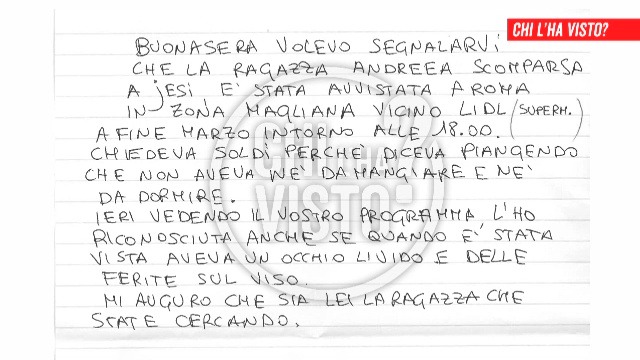 CHI L'HA VISTO?
BUONASERA VOLEVO SEGNALARVI
CHE LA RAGAZZA ANDREEA SCOMPARSA
A JESI E' STATA AVVISTATA A ROMA
IN ZONA MAGLIANA VICINO LIDL (SUPERM.)
A FINE MARZO INTORNO ALLE 18.00.
CHIEDEVA SOLDI PERCHE' DICEVA PIANGENDO
CHE NON AVEVA NE' DA MANGIARE E NE'
DA DORMIRE.
IERI VEDENDO IL VOSTRO PROGRAMMA L'HO
RICONOSCIUTA ANCHE SE QUANDO E' STATA
VISTA AVEVA UN OCCHIO LIVIDO E DELLE
FERITE SUL VISO.
MI AUGURO CHE SIA LEI LA RAGAZZA CHE
STATE CERCANDO.
CHI L'HA
VISTO?